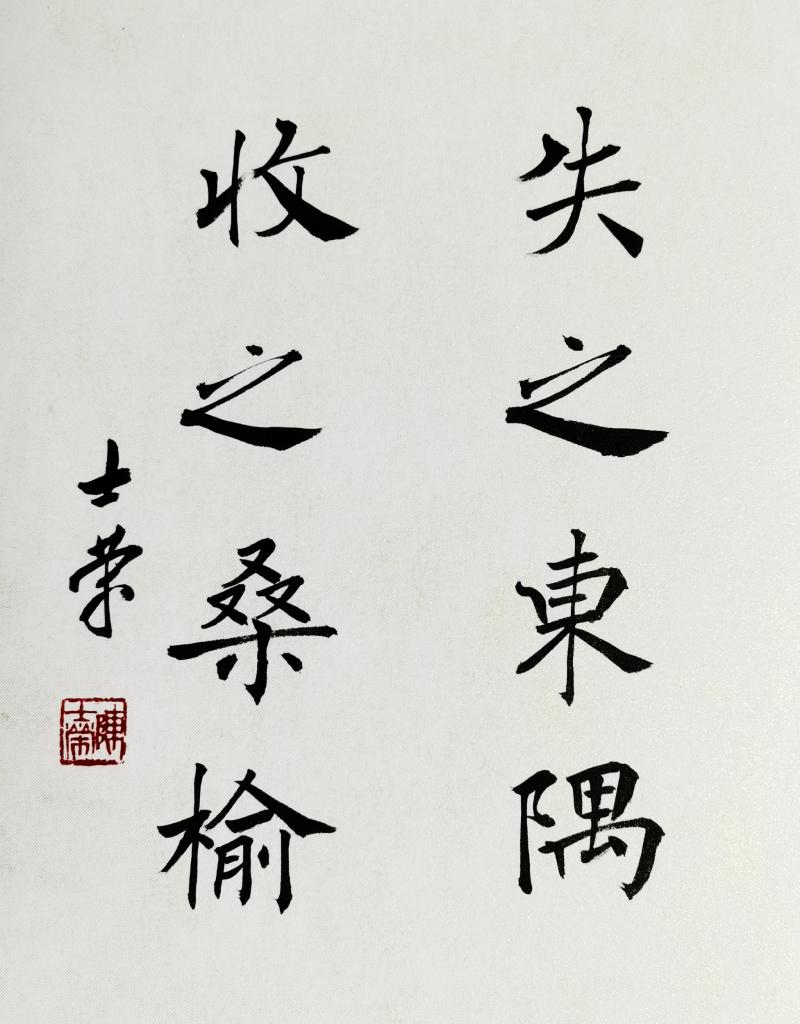 失之東隅
收之桑榆
士荣
陳士榮